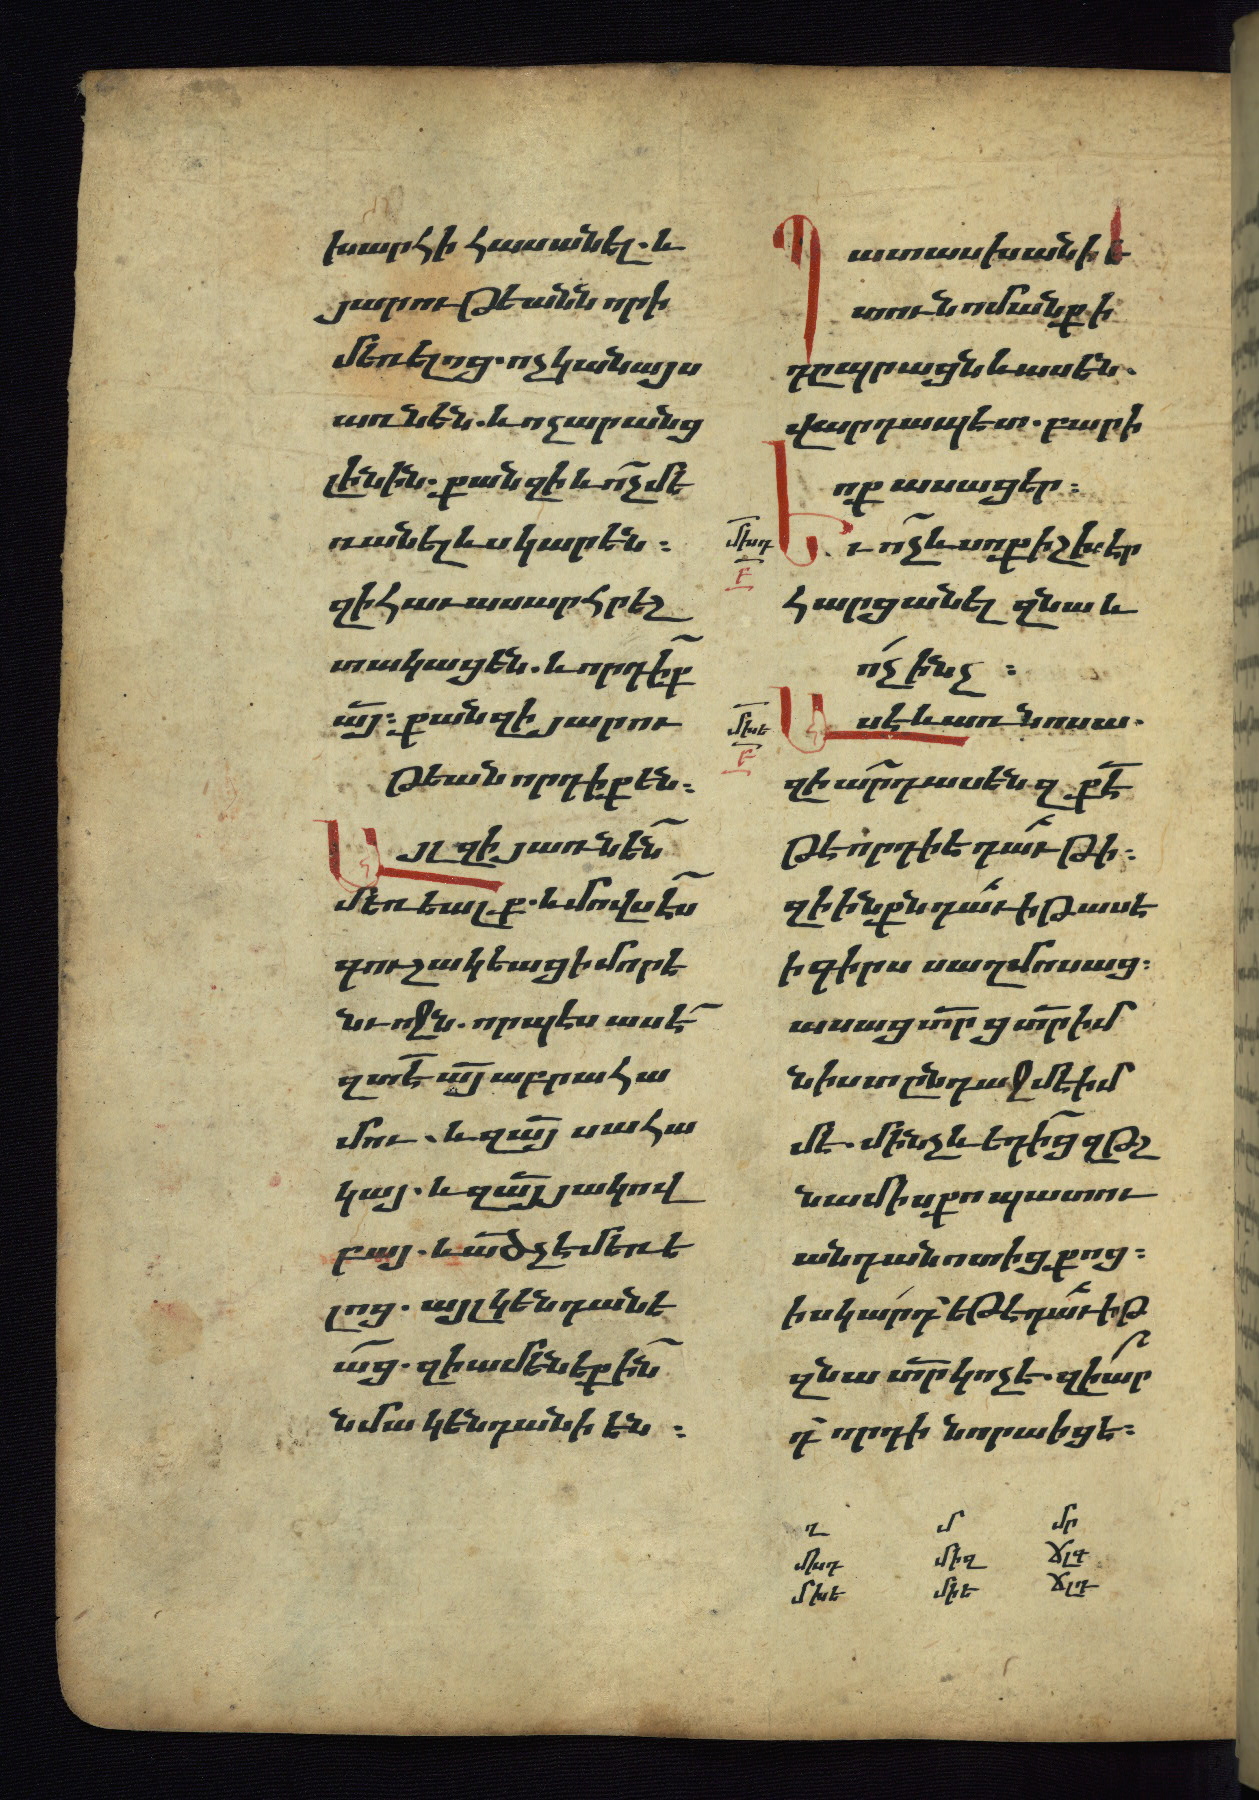 խարհի հասանել. և
յարութեանն որի
մեռելոց. ոչ կանայս
առնեն. և ոչ արանց
լինին. քանզի և ոչ մե
ռանել ևս կարեն :
զի հաւասար հրեշ
տակաց են. և որդիք
այ : քանզի յարու
թեան որդիք են :
Այլ զի յառնեն
մեռեալք. և մովսէս
գուշակեաց ի մորէ
նւոջն. որպէս ասէ
զտէ ած աբրահա
մու. և զած սահա
կայ. և զած յակով
բայ. և ած չէ մեռե
լոց. այլ կենդանե
աց. զի ամենեքին
նմա կենդանի են :
Պատասխանի ե
տուն ոմանք ի
դպրացն և ասեն.
վարդապետ. բարի
ոք ասացեր :
Եւ ոչ ևս ոք իշխէր
հարցանել զնա և
ոչ ինչ :
Ասէ և առ նոսա.
զիարդ ասեն զքէ
թէ որդի է դաւթի :
զի ինքն դաւիթ ասէ
ի գիրս սաղմոսաց :
ասաց տր ց տր իմ
նիստ ընդ աջմէ իմ
մե. մինչև եդից զթշ
նամիս քո պատու
անդան ոտից քոց :
իսկ արդ եթէ դաւիթ
զնա տր կոչէ. զիար
դ որդի նորա իցէ :
մխդ
Բ
մխե
Բ
ղ մ մր
մխդ միզ ճլգ
մխե միե ճլդ